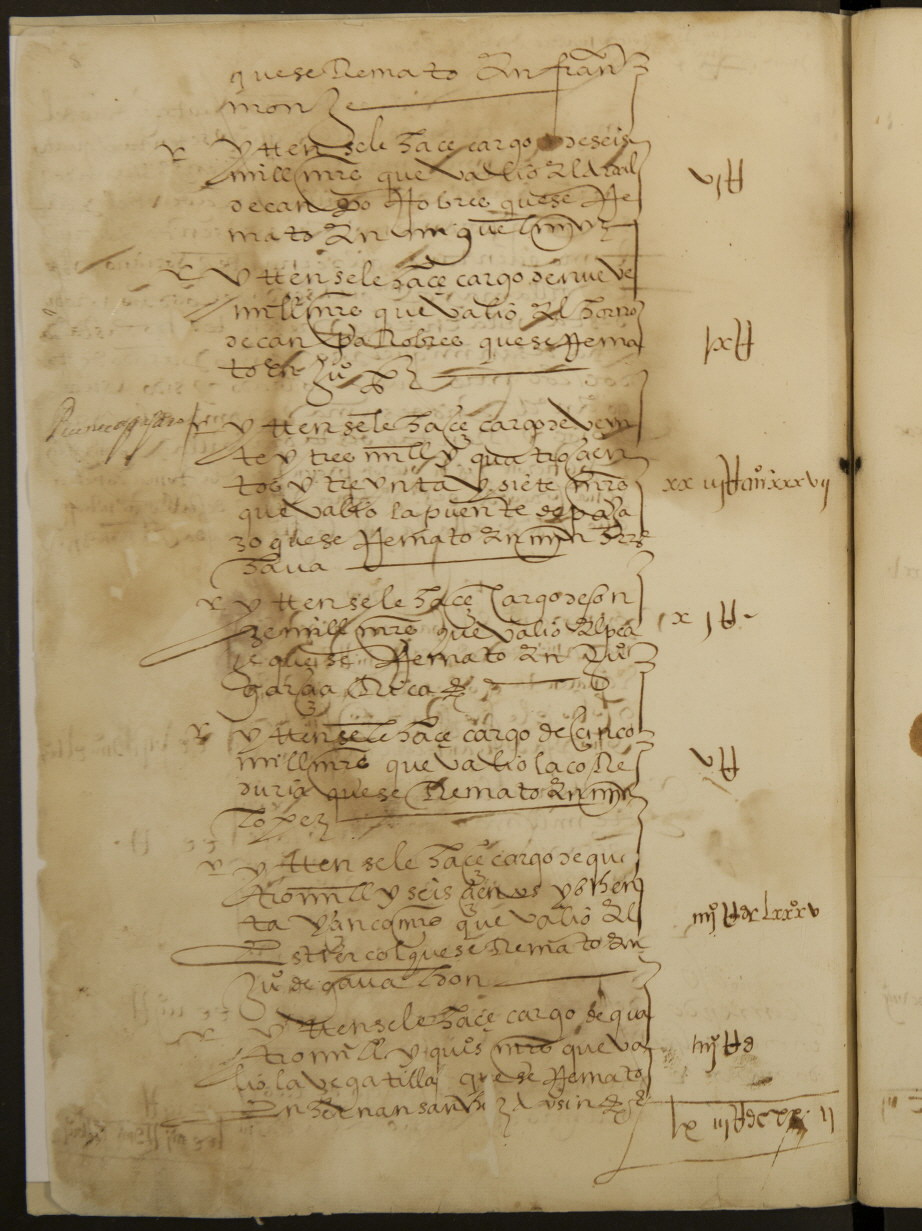 que se Remato En fran
monze
r ytten se le haçe cargo de seis vjU
mill mrs que valio El Real
de can po Robres que se Re
mato En miguel
r ytten se le haçe cargo de nueve
mill mrs que valio El horno ixU
de can pa Robres que se Rema
to En Ju
r ytten se le haçe cargo de vein
te y tres mill y quatroçien
tos y treynta y siete mrs xx iijU xxxvij
que valio la puente de paja
zo que se Remato En min
r ytten se le haçe cargo de on
ze mill mrs que valio El pea xjU
je que se Remato En
garçia
r ytten se le haçe cargo de çinco
mill mrs que valio la co Re vU
duria que se Remato En
lopez
r ytten se le haçe cargo de qua
tro mill y seis çientos y ochen
ta y çinco mrs que valio El iiijUdclxxxv
Estiercol que se Remato En
Ju de gavaldon
r ytten se le haçe cargo de qua
tro mill y quis mrs que va iiijUd
lio la vegatilla que se Remato
En hernan